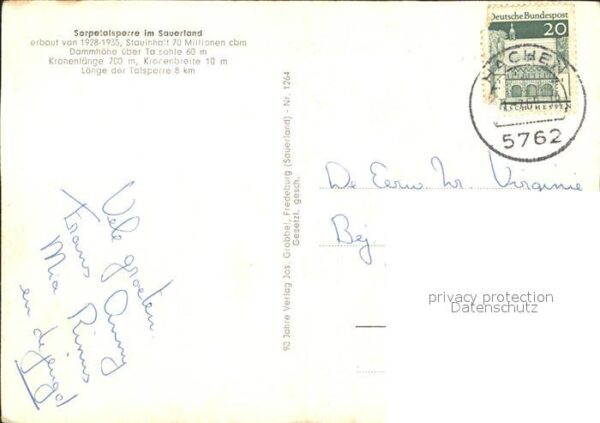 Sorpetalsperre im Sauerland
erbaut von 1928-1935, Stauinhalt 70 Millionen cbm
Dammhöhe über Talsohle 60 m
Kronenlänge 700 m, Kronenbreite 10 m
Länge der Talsperre 8 km
Deutsche Bundespost
20
HACHEN
5762
90 Jahre Verlag Jos. Grobbel, Fredeburg (Sauerland) - Nr. 1264
Gesetzl. gesch.
De Eerw. Zr. Virginie
Bej
Vele groeten.
Frans Anny
Mia Rinus
en de jeugd
privacy protection
Datenschutz